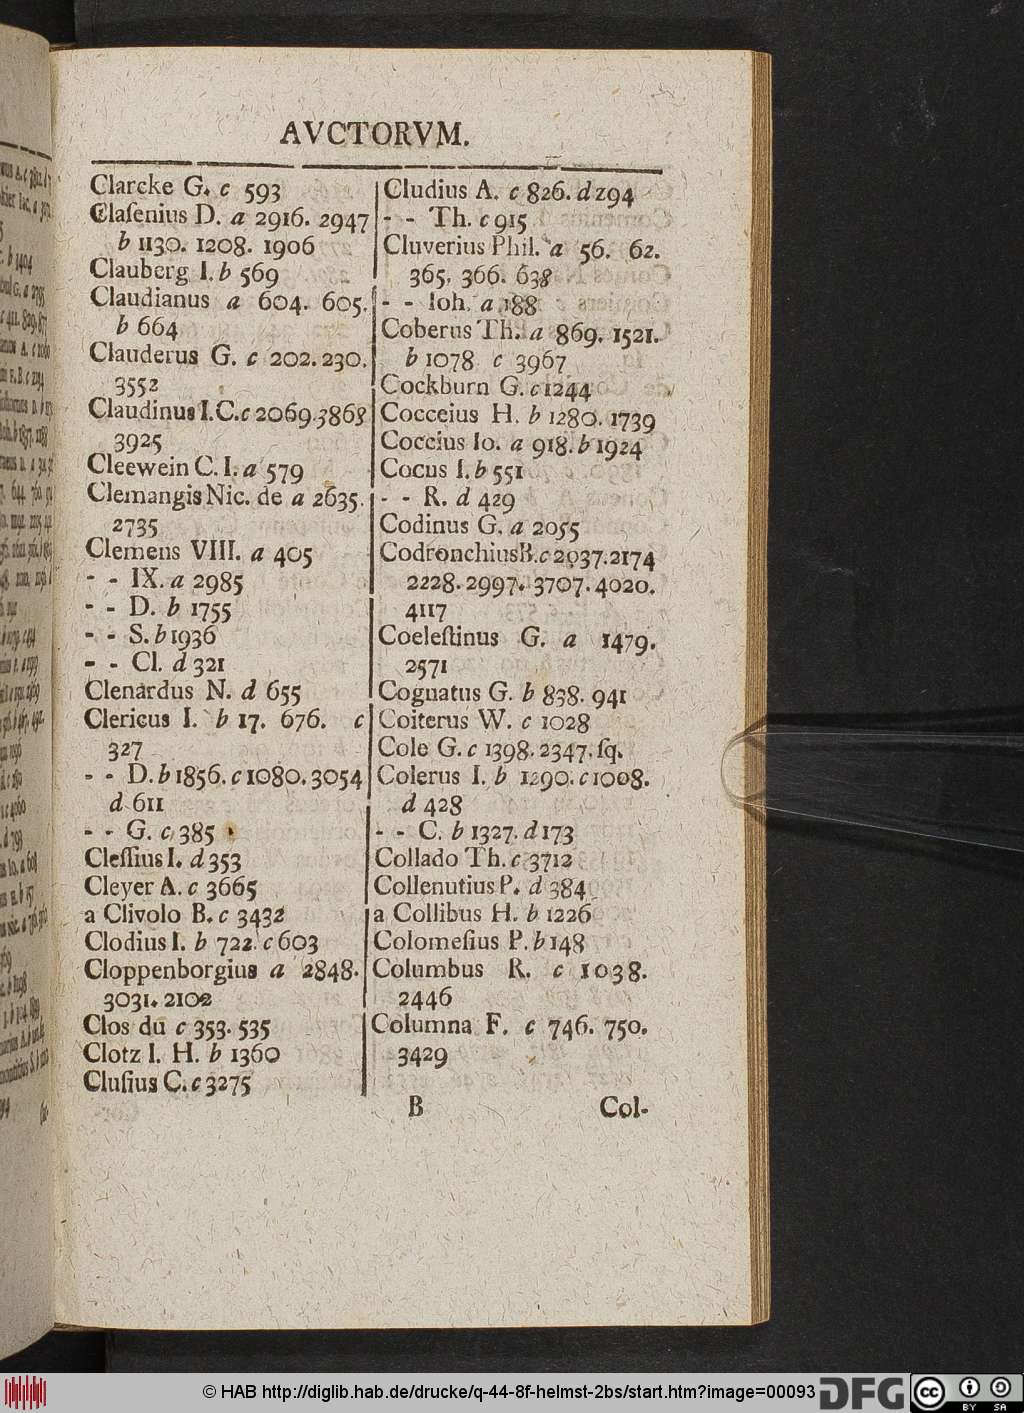 AVCTORVM.
Clarcke G. c 593
Claſenius D. a 2916. 2947
b 1130. 1208. 1906
Clauberg I. b 569
Claudianus a 604. 605.
b 664
Clauderus G. c 202. 230.
3552
Claudinus I. C. c 2069. 3868
3925
Cleewein C. I. a 579
Clemangis Nic. de a 2635.
2735
Clemens VIII. a 405
- - IX. a 2985
- - D. b 1755
- - S. b 1936
- - Cl. d 321
Clenardus N. d 655
Clericus I. b 17. 676. c
327
- - D. b 1856. c 1080. 3054
d 611
- - G. c 385
Cleſſius I. d 353
Cleyer A. c 3665
a Clivolo B. c 3432
Clodius I. b 722. c 603
Cloppenborgius a 2848.
3031. 2102
Clos du c 353. 535
Clotz I. H. b 1360
Cluſius C. c 3275
Cludius A. c 826. d 294
- - Th. c 915
Cluverius Phil. a 56. 62.
365. 366. 638
- - Ioh. a 188
Coberus Th. a 869. 1521.
b 1078 c 3967
Cockburn G. c 1244
Cocceius H. b 1280. 1739
Coccius Io. a 918. b 1924
Cocus I. b 551
- - R. d 429
Codinus G. a 2055
Codronchius B. c 2037. 2174
2228. 2997. 3707. 4020.
4117
Coeleſtinus G. a 1479.
2571
Cognatus G. b 838. 941
Coiterus W. c 1028
Cole G. c 1398. 2347. ſq.
Colerus I. b 1290. c 1008.
d 428
- - C. b 1327. d 173
Collado Th. c 3712
Collenutius P. d 384
a Collibus H. b 1226
Colomeſius P. b 148
Columbus R. c 1038.
2446
Columna F. c 746. 750.
3429
B Col-
© HAB http://diglib.hab.de/drucke/q-44-8f-helmst-2bs/start.htm?image=00093 DFG cc BY SA